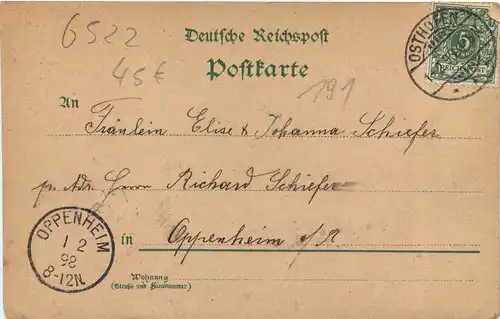 6522
45€
191
Deutsche Reichspost
Postkarte
OSTHOFEN
5
REICHSPOST
An
Fräulein Elise & Johanna Schiefer
pr. Adr. Herrn Richard Schiefer
in Oppenheim a/R
OPPENHEIM
1 2
98
8-12N.
Wohnung
(Straße und Hausnummer)